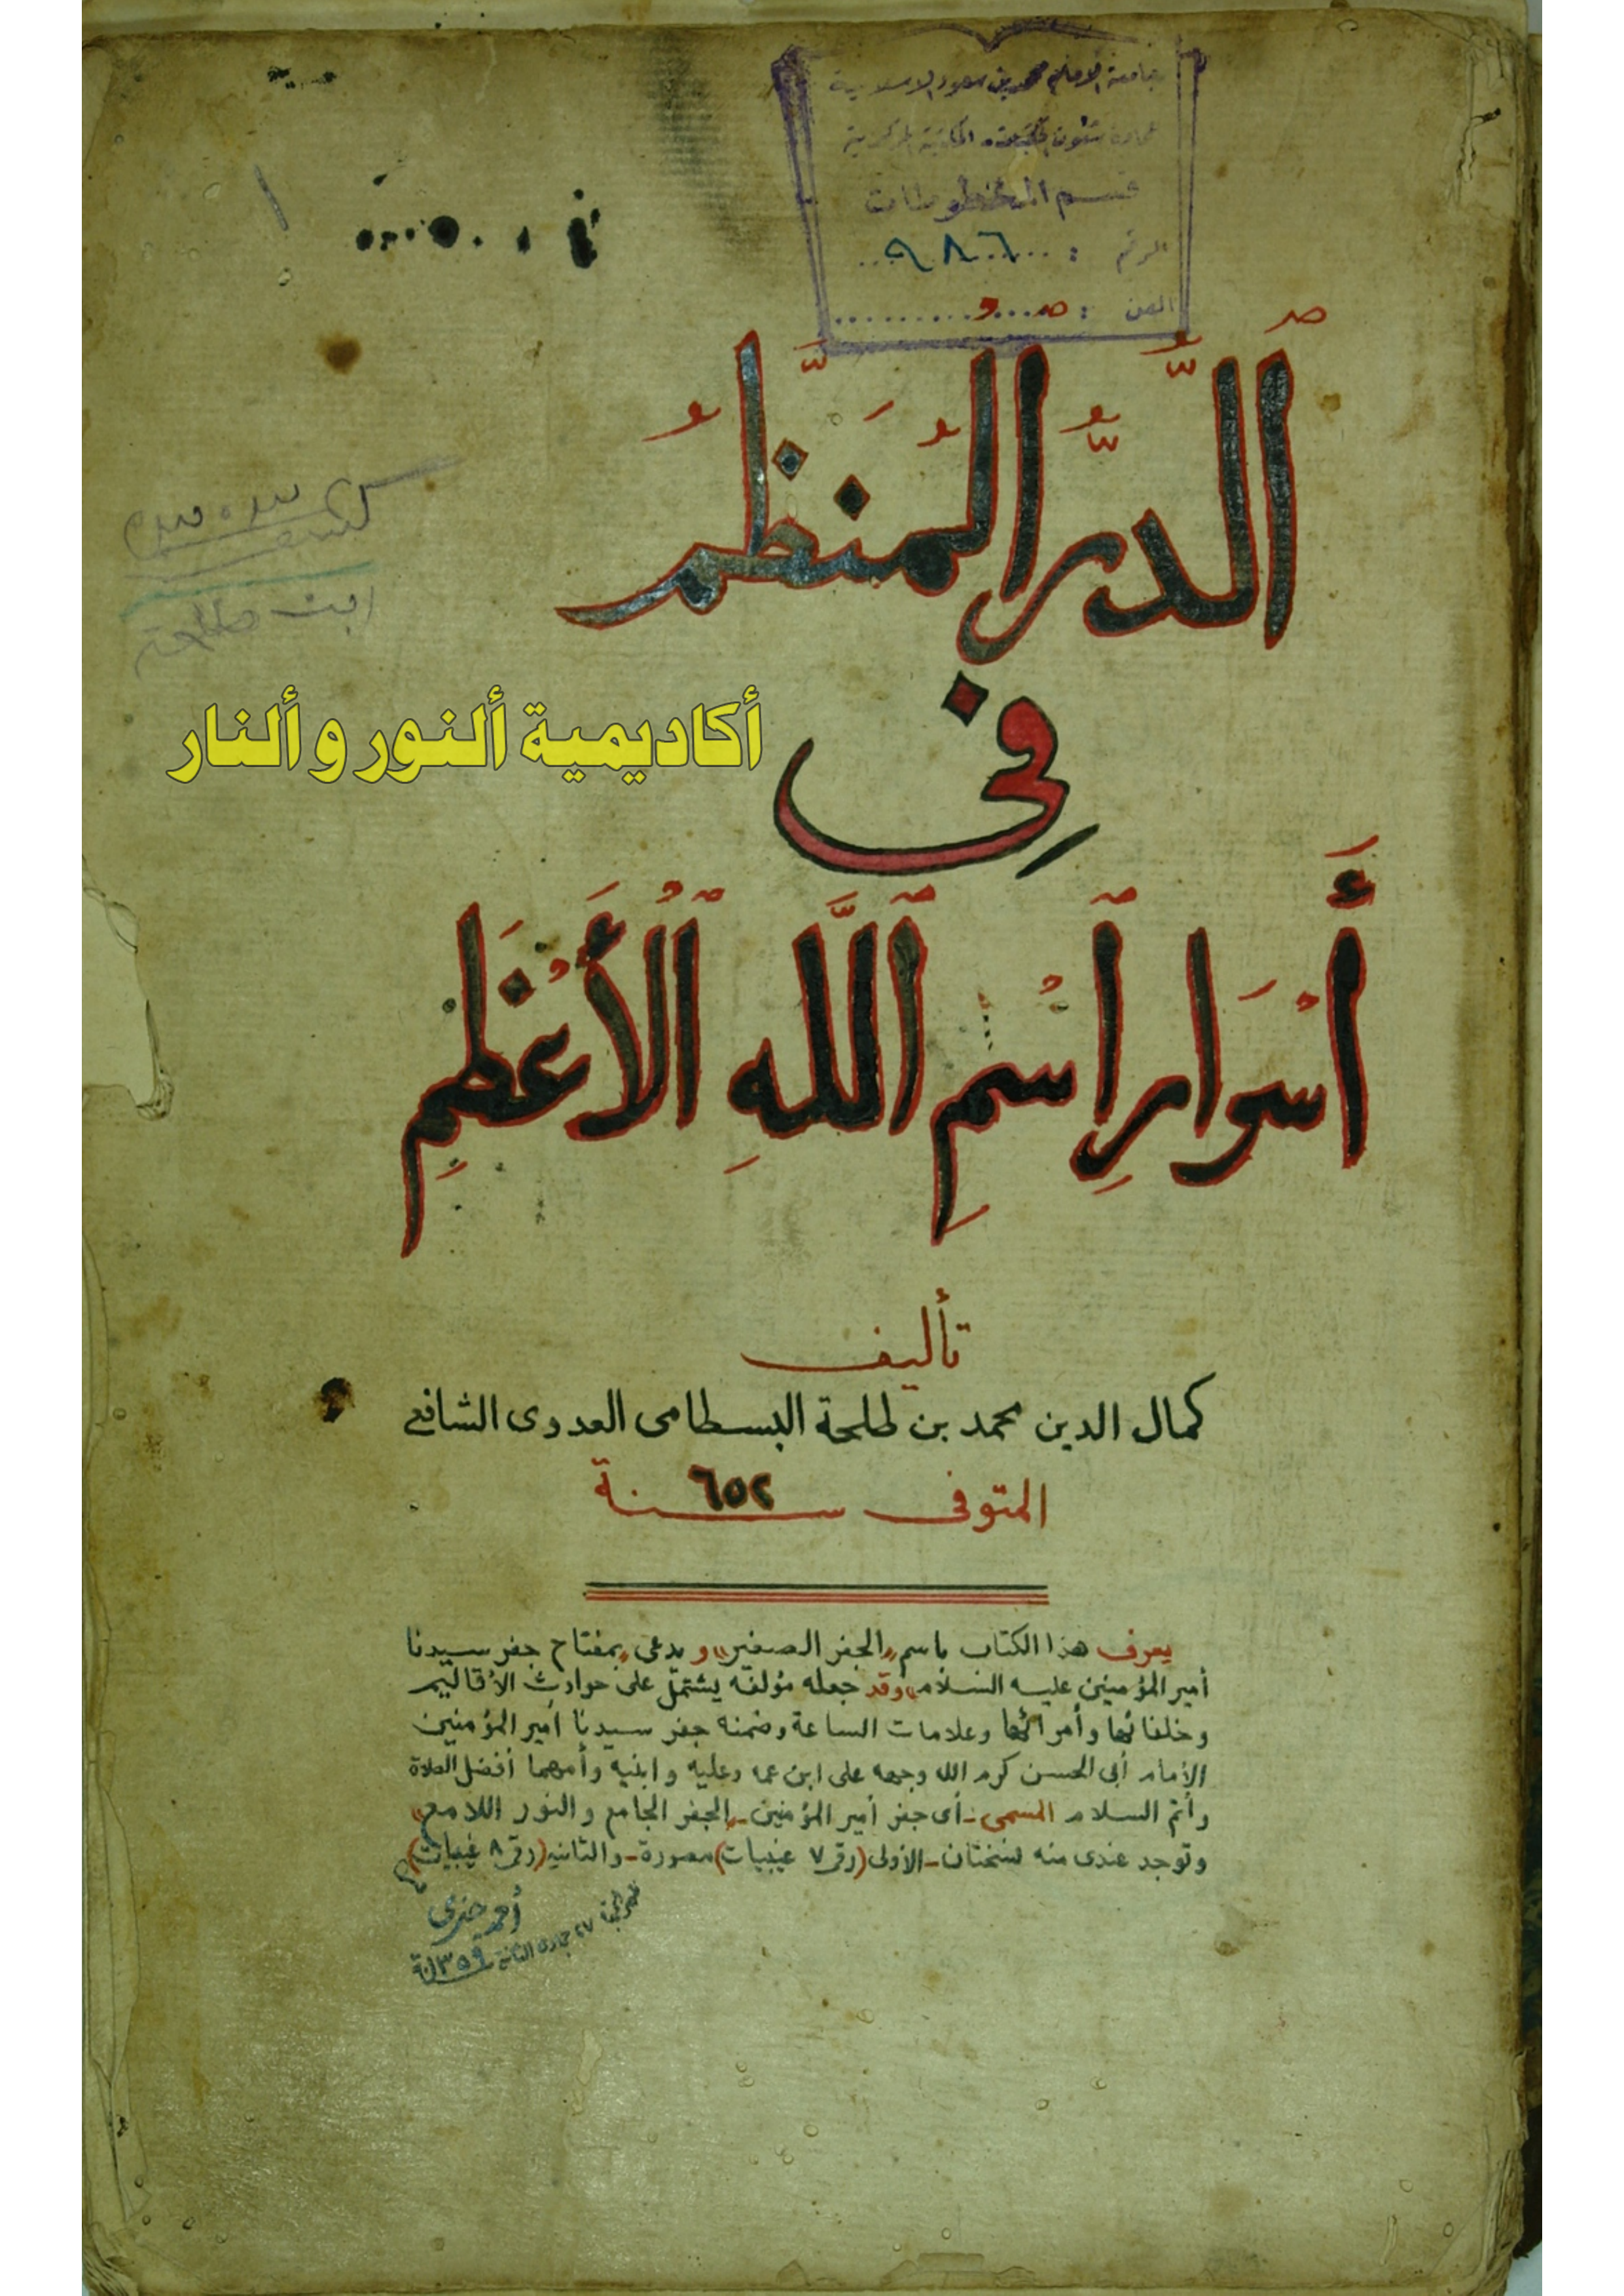 جامعة الإمام محمد بن سعود الإسلامية
عمادة شئون المكتبات المكتبة المركزية
قسم المخطوطات
الرقم : ٩٨٦
الفن :
الدُّرُّ الْمُنَظَّمُ
فِى
أكاديمية ألنور و ألنار
أَسْوَارِ اسْمِ اللَّهِ الْأَعْظَمِ
ابن طلحة
تأليف
كمال الدين محمد بن طلحة البسطامى العدوى الشافعى
المتوفى سنة ٦٥٢
يعرف هذا الكتاب باسم «الجفر الصغير» ويدعى «بمفتاح جفر سيدنا
أمير المؤمنين عليه السلام» وقد جعله مؤلفه يشتمل على حوادث الأقاليم
وخلفائها وأمرائها وعلامات الساعة وضمنه جفر سيدنا أمير المؤمنين
الإمام أبى الحسن كرم الله وجهه على ابن عمه وعليه وابنيه وأمهما أفضل الصلاة
وأتم السلام المسمى - أى جفر أمير المؤمنين - «الجفر الجامع والنور اللامع»
وتوجد عندى منه نسختان - الأولى (رقم ٧ غيبيات) مصورة - والثانيه (رقم ٨ غيبيات)
أحمد خيرى
٢٧ جمادى الثانية سنة ١٣٥٩